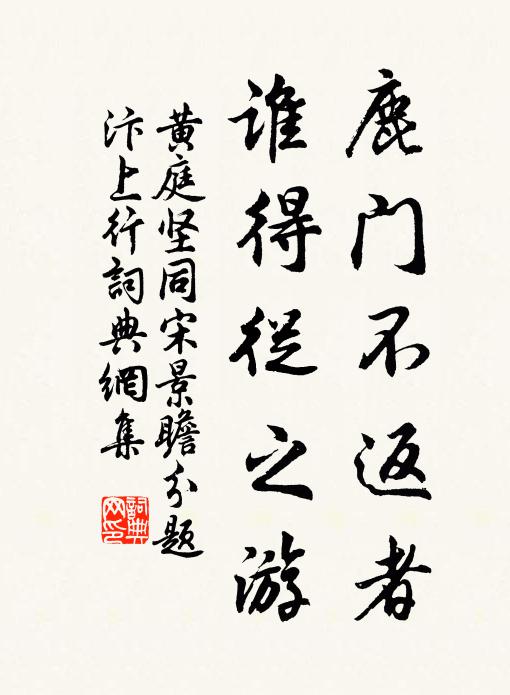 鹿门不返者
谁得從之游
黄庭坚同宋景瞻分题
汴上行詞典網集
詞典
网印